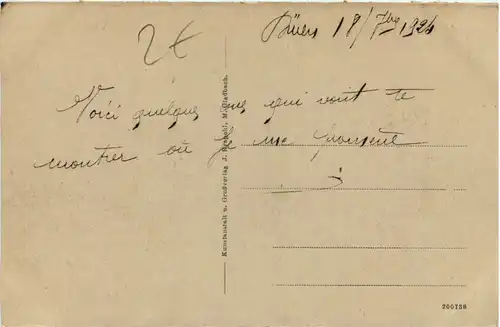 2€
Düren 18/7bre 1926
Voici quelques vues qui vont te
montrer où je me promène
Kunstanstalt u. Großverlag J. M.Gladbach.
200728